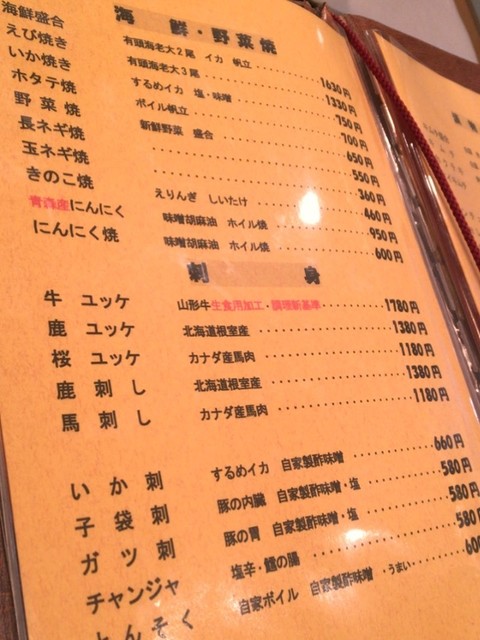 海鮮・野菜焼
海鮮盛合 有頭海老大2尾 イカ 帆立 1630円
えび焼き 有頭海老大3尾 1330円
いか焼き するめイカ 塩・味噌 750円
ホタテ焼 ボイル帆立 700円
野菜焼 新鮮野菜 盛合 650円
長ネギ焼 550円
玉ネギ焼 360円
きのこ焼 えりんぎ しいたけ 460円
青森産にんにく 味噌胡麻油 ホイル焼 950円
にんにく焼 味噌胡麻油 ホイル焼 600円
刺身
牛ユッケ 山形牛生食用加工・調理新基準 1780円
鹿ユッケ 北海道根室産 1380円
桜ユッケ カナダ産馬肉 1180円
鹿刺し 北海道根室産 1380円
馬刺し カナダ産馬肉 1180円
いか刺 するめイカ 自家製酢味噌 660円
子袋刺 豚の内臓 自家製酢味噌・塩 580円
ガツ刺 豚の胃 自家製酢味噌・塩 580円
チャンジャ 塩辛・鱈の腸 580円
とんそく 自家ボイル 自家製酢味噌・うまい 600